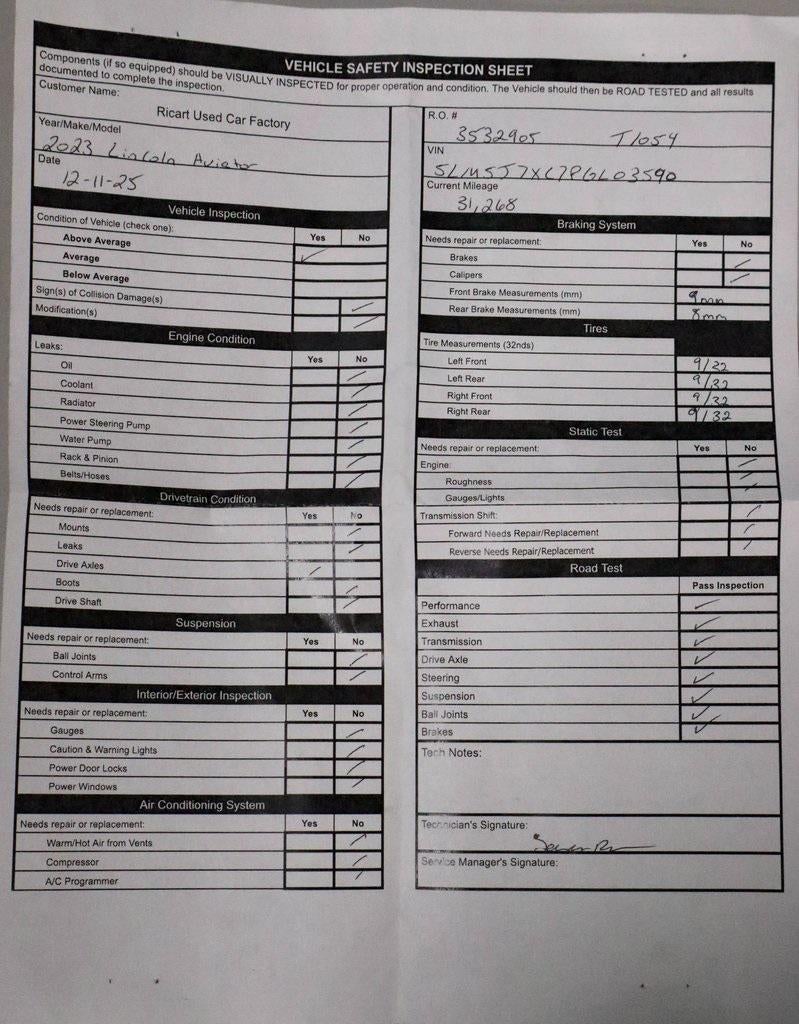 VEHICLE SAFETY INSPECTION SHEET
Components (if so equipped) should be VISUALLY INSPECTED for proper operation and condition. The Vehicle should then be ROAD TESTED and all results
documented to complete the inspection.
Customer Name:
Ricart Used Car Factory
Year/Make/Model
2023 Lincoln Aviator
Date
12-11-25
R.O. #
3532905 T1054
VIN
5LM5J7XC7PGL03590
Current Mileage
31,268
Vehicle Inspection
Condition of Vehicle (check one): Yes No
Above Average
Average ✓
Below Average
Sign(s) of Collision Damage(s)
Modification(s)
Engine Condition
Leaks: Yes No
Oil
Coolant
Radiator
Power Steering Pump
Water Pump
Rack & Pinion
Belts/Hoses
Drivetrain Condition
Needs repair or replacement: Yes No
Mounts
Leaks
Drive Axles
Boots
Drive Shaft
Suspension
Needs repair or replacement: Yes No
Ball Joints
Control Arms
Interior/Exterior Inspection
Needs repair or replacement: Yes No
Gauges
Caution & Warning Lights
Power Door Locks
Power Windows
Air Conditioning System
Needs repair or replacement: Yes No
Warm/Hot Air from Vents
Compressor
A/C Programmer
Braking System
Needs repair or replacement: Yes No
Brakes
Calipers
Front Brake Measurements (mm) 9mm
Rear Brake Measurements (mm) 8mm
Tires
Tire Measurements (32nds)
Left Front 9/32
Left Rear 9/32
Right Front 9/32
Right Rear 9/32
Static Test
Needs repair or replacement: Yes No
Engine:
Roughness
Gauges/Lights
Transmission Shift:
Forward Needs Repair/Replacement
Reverse Needs Repair/Replacement
Road Test
Pass Inspection
Performance ✓
Exhaust ✓
Transmission ✓
Drive Axle ✓
Steering ✓
Suspension ✓
Ball Joints ✓
Brakes ✓
Tech Notes:
Technician's Signature:
Service Manager's Signature: